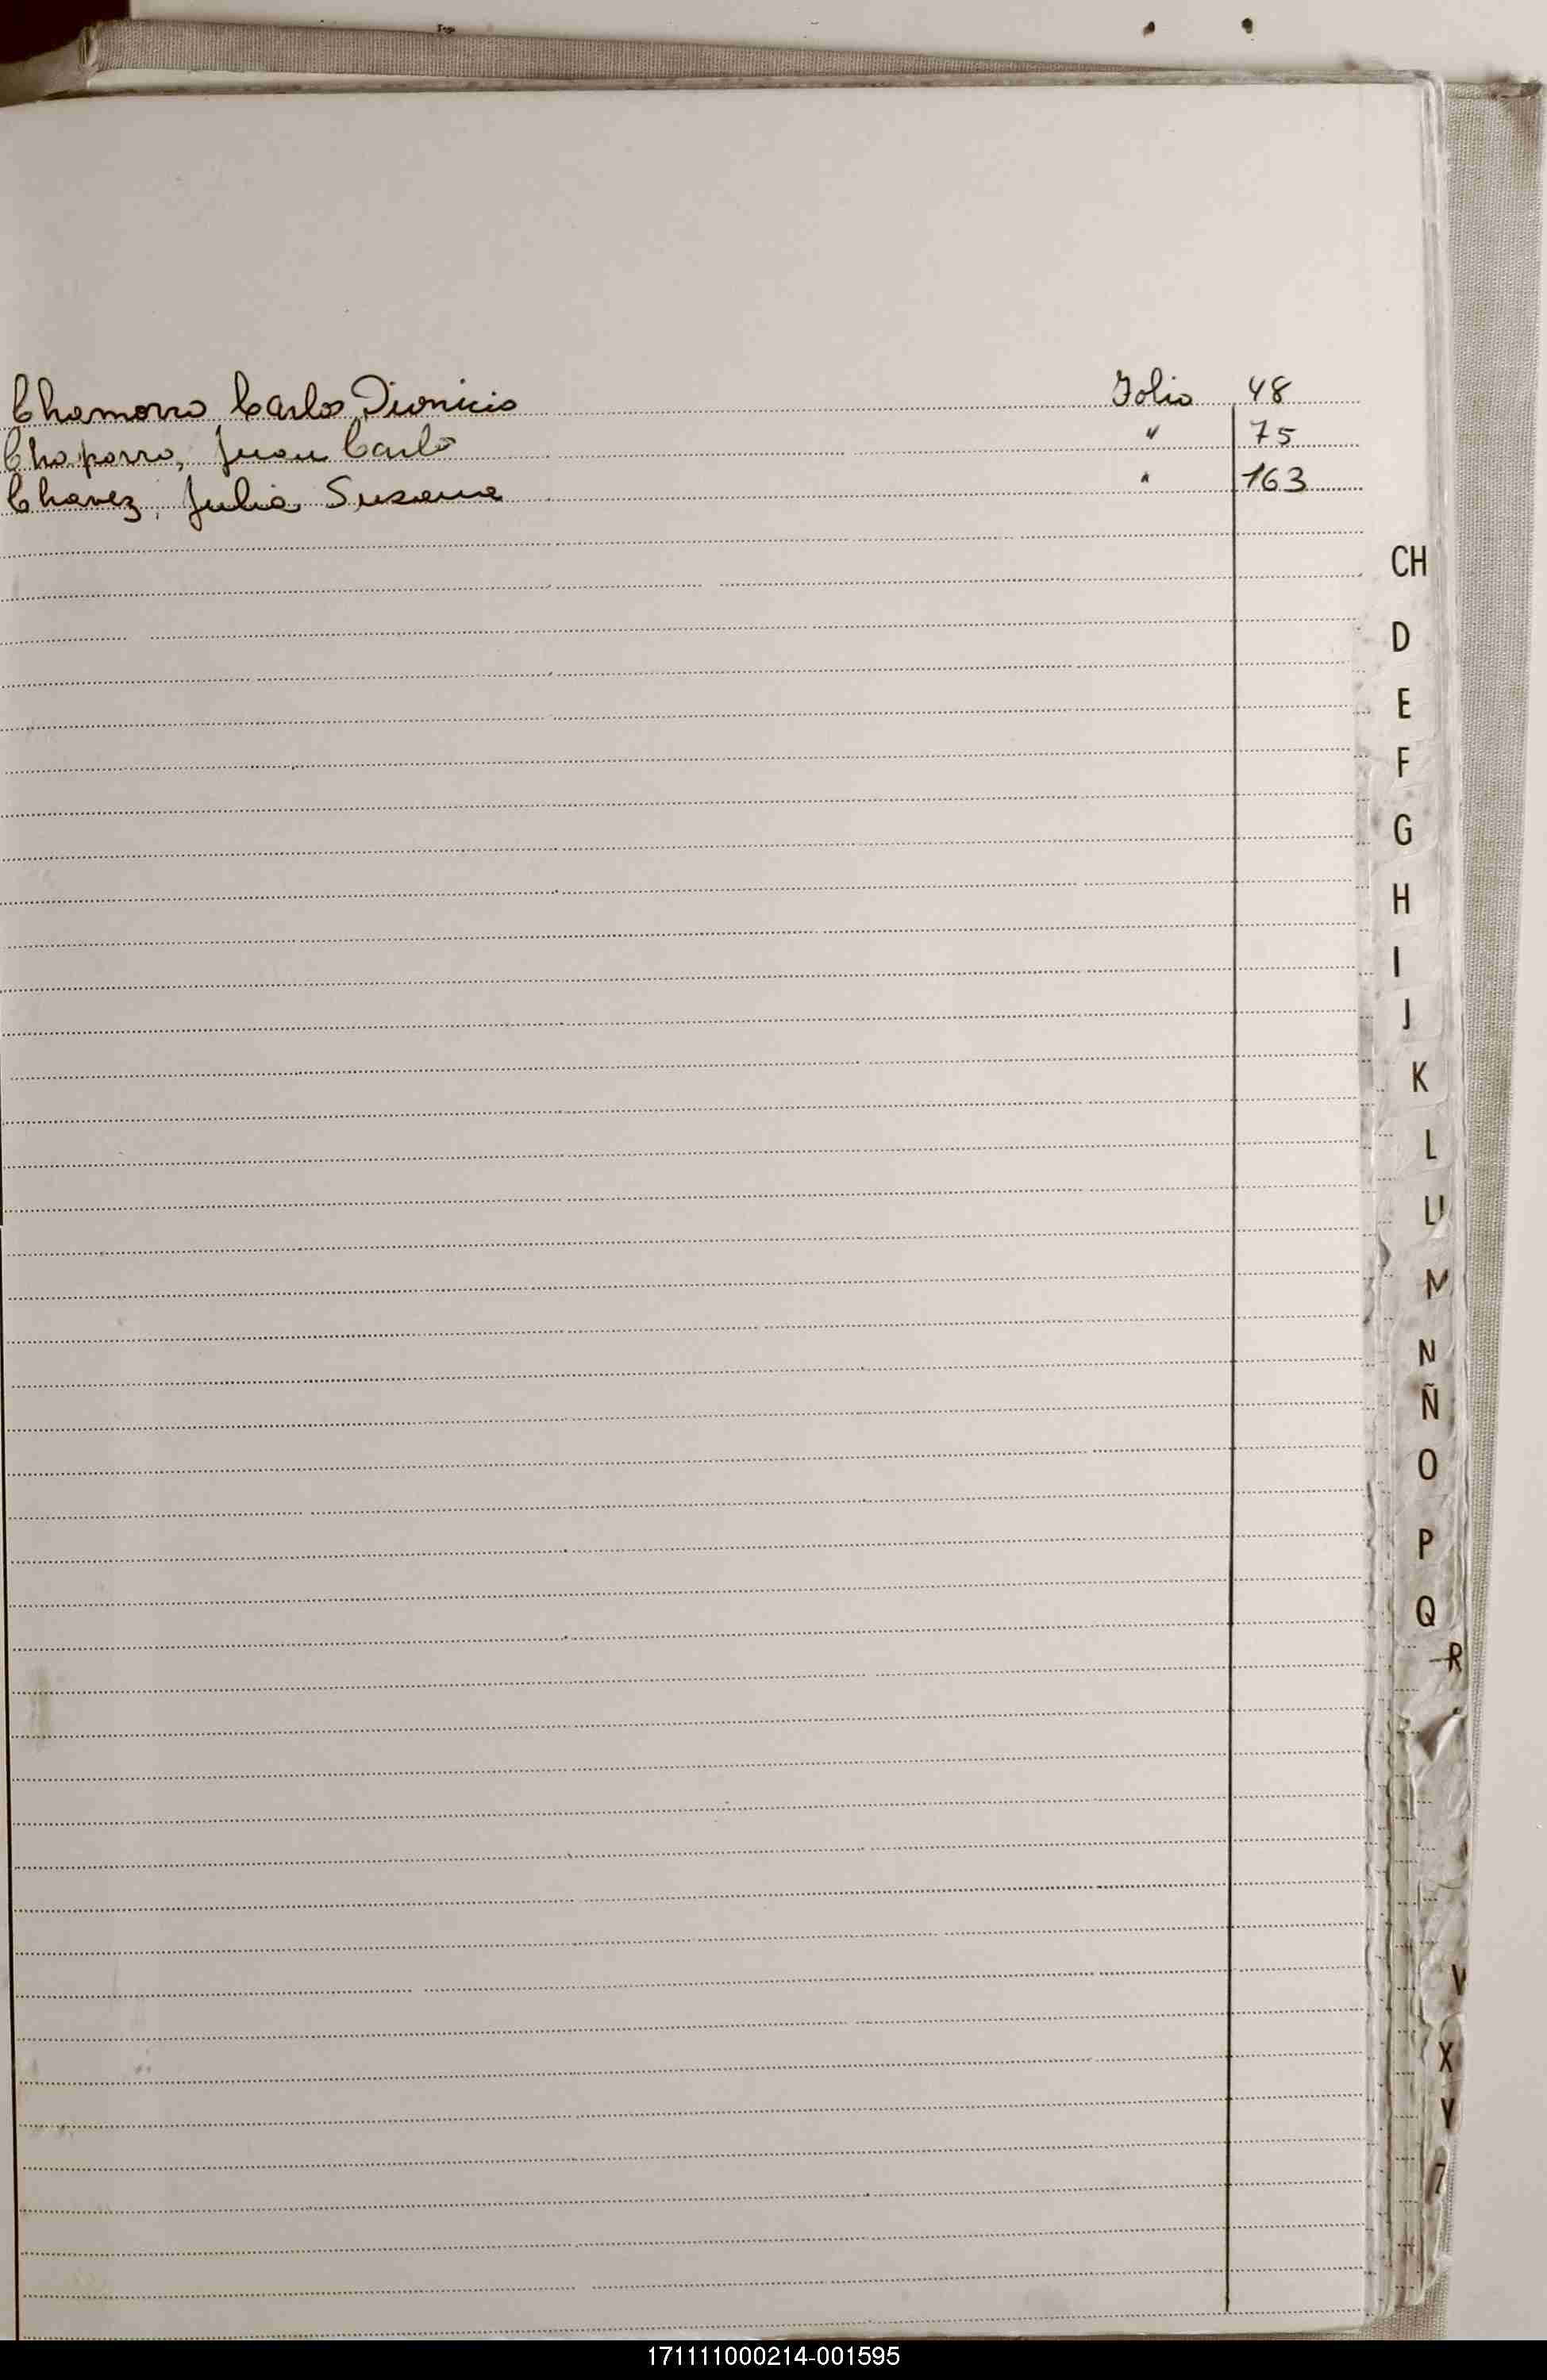 Chamorro Carlos Dionicio Folio 48
Chaparro, Juan Carlo " 75
Chavez, Julia Susana " 163
CH
D
E
F
G
H
I
J
K
L
LL
M
N
Ñ
O
P
Q
R
V
X
Y
171111000214-001595